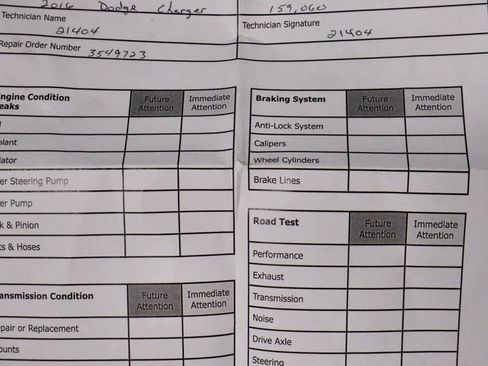 2016 Dodge Charger 159,060
Technician Name Technician Signature
21404 21404
Repair Order Number 3549723
ngine Condition Future Attention Immediate Attention
eaks
lant
ator
er Steering Pump
er Pump
k & Pinion
s & Hoses
ansmission Condition Future Attention Immediate Attention
pair or Replacement
ounts
Braking System Future Attention Immediate Attention
Anti-Lock System
Calipers
Wheel Cylinders
Brake Lines
Road Test Future Attention Immediate Attention
Performance
Exhaust
Transmission
Noise
Drive Axle
Steering